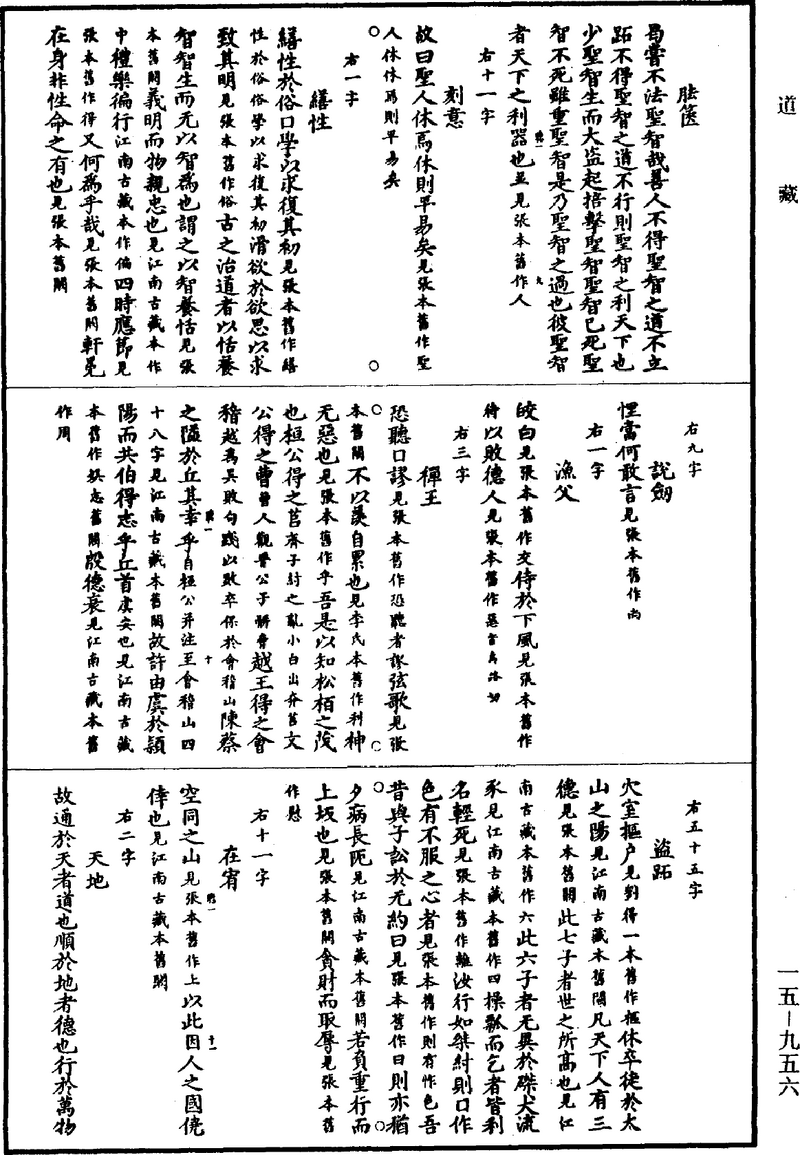 道藏
胠篋
曷嘗不法聖智哉善人不得聖智之道不立
跖不得聖智之道不行則聖智之利天下也
少聖智生而大盜起掊擊聖智聖智已死聖
智不死雖重聖智是乃聖智之過也彼聖智
者天下之利器也並見張本舊作人
右十一字
刻意
故曰聖人休焉休則平易矣見張本舊作聖
人休休焉則平易矣
右一字
繕性
繕性於俗口學以求復其初見張本舊作繕
性於俗俗學以求復其初滑欲於欲思以求
致其明見張本舊作俗古之治道者以恬養
智智生而无以智為也謂之以智養恬見張
本舊闕義明而物親忠也見江南古藏本作
中禮樂徧行江南古藏本作偏四時應節見
張本舊作得又何為乎哉見張本舊闕軒冕
在身非性命之有也見張本舊闕
右九字
說劍
悝當何敢言見張本舊作尚
右一字
漁父
皎白見張本舊作交侍於下風見張本舊作
待以敗德人見張本舊作惡
右三字
禪王
恐聽口謬見張本舊作恐聽者謬弦歌見張
本舊闕不以羨自累也見李氏本舊作利神
无惡也見張本舊作乎吾是以知松栢之茂
也桓公得之莒齊子紂之亂小白出奔莒文
公得之曹曹人觀晉公子駢脅越王得之會
稽越為吳敗勾踐以敗卒保於會稽山陳蔡
之隘於丘其幸乎自桓公并注至會稽山四
十八字見江南古藏本舊闕故許由虞於潁
陽而共伯得志乎丘首虞安也見江南古藏
本舊作娛志舊闕殷德衰見江南古藏本舊
作周
右五十五字
盜跖
穴室樞户見劉得一本舊作樞休卒徒於太
山之陽見江南古藏本舊闕凡天下人有三
德見張本舊闕此七子者世之所高也見江
南古藏本舊作六此六子者无異於磔犬流
豕見江南古藏本舊作四操瓢而乞者皆利
名輕死見張本舊作離汝行如桀紂則口作
色有不服之心者見張本舊作則有怍色吾
昔與子訟於无約曰見張本舊作日則亦猶
久病長阨見江南古藏本舊闕若負重行而
上坂也見張本舊闕貪財而取辱見張本舊
作慰
右十一字
在宥
空同之山見張本舊作上以此因人之國僥
倖也見江南古藏本舊闕
右二字
天地
故通於天者道也順於地者德也行於萬物
一五－九五六